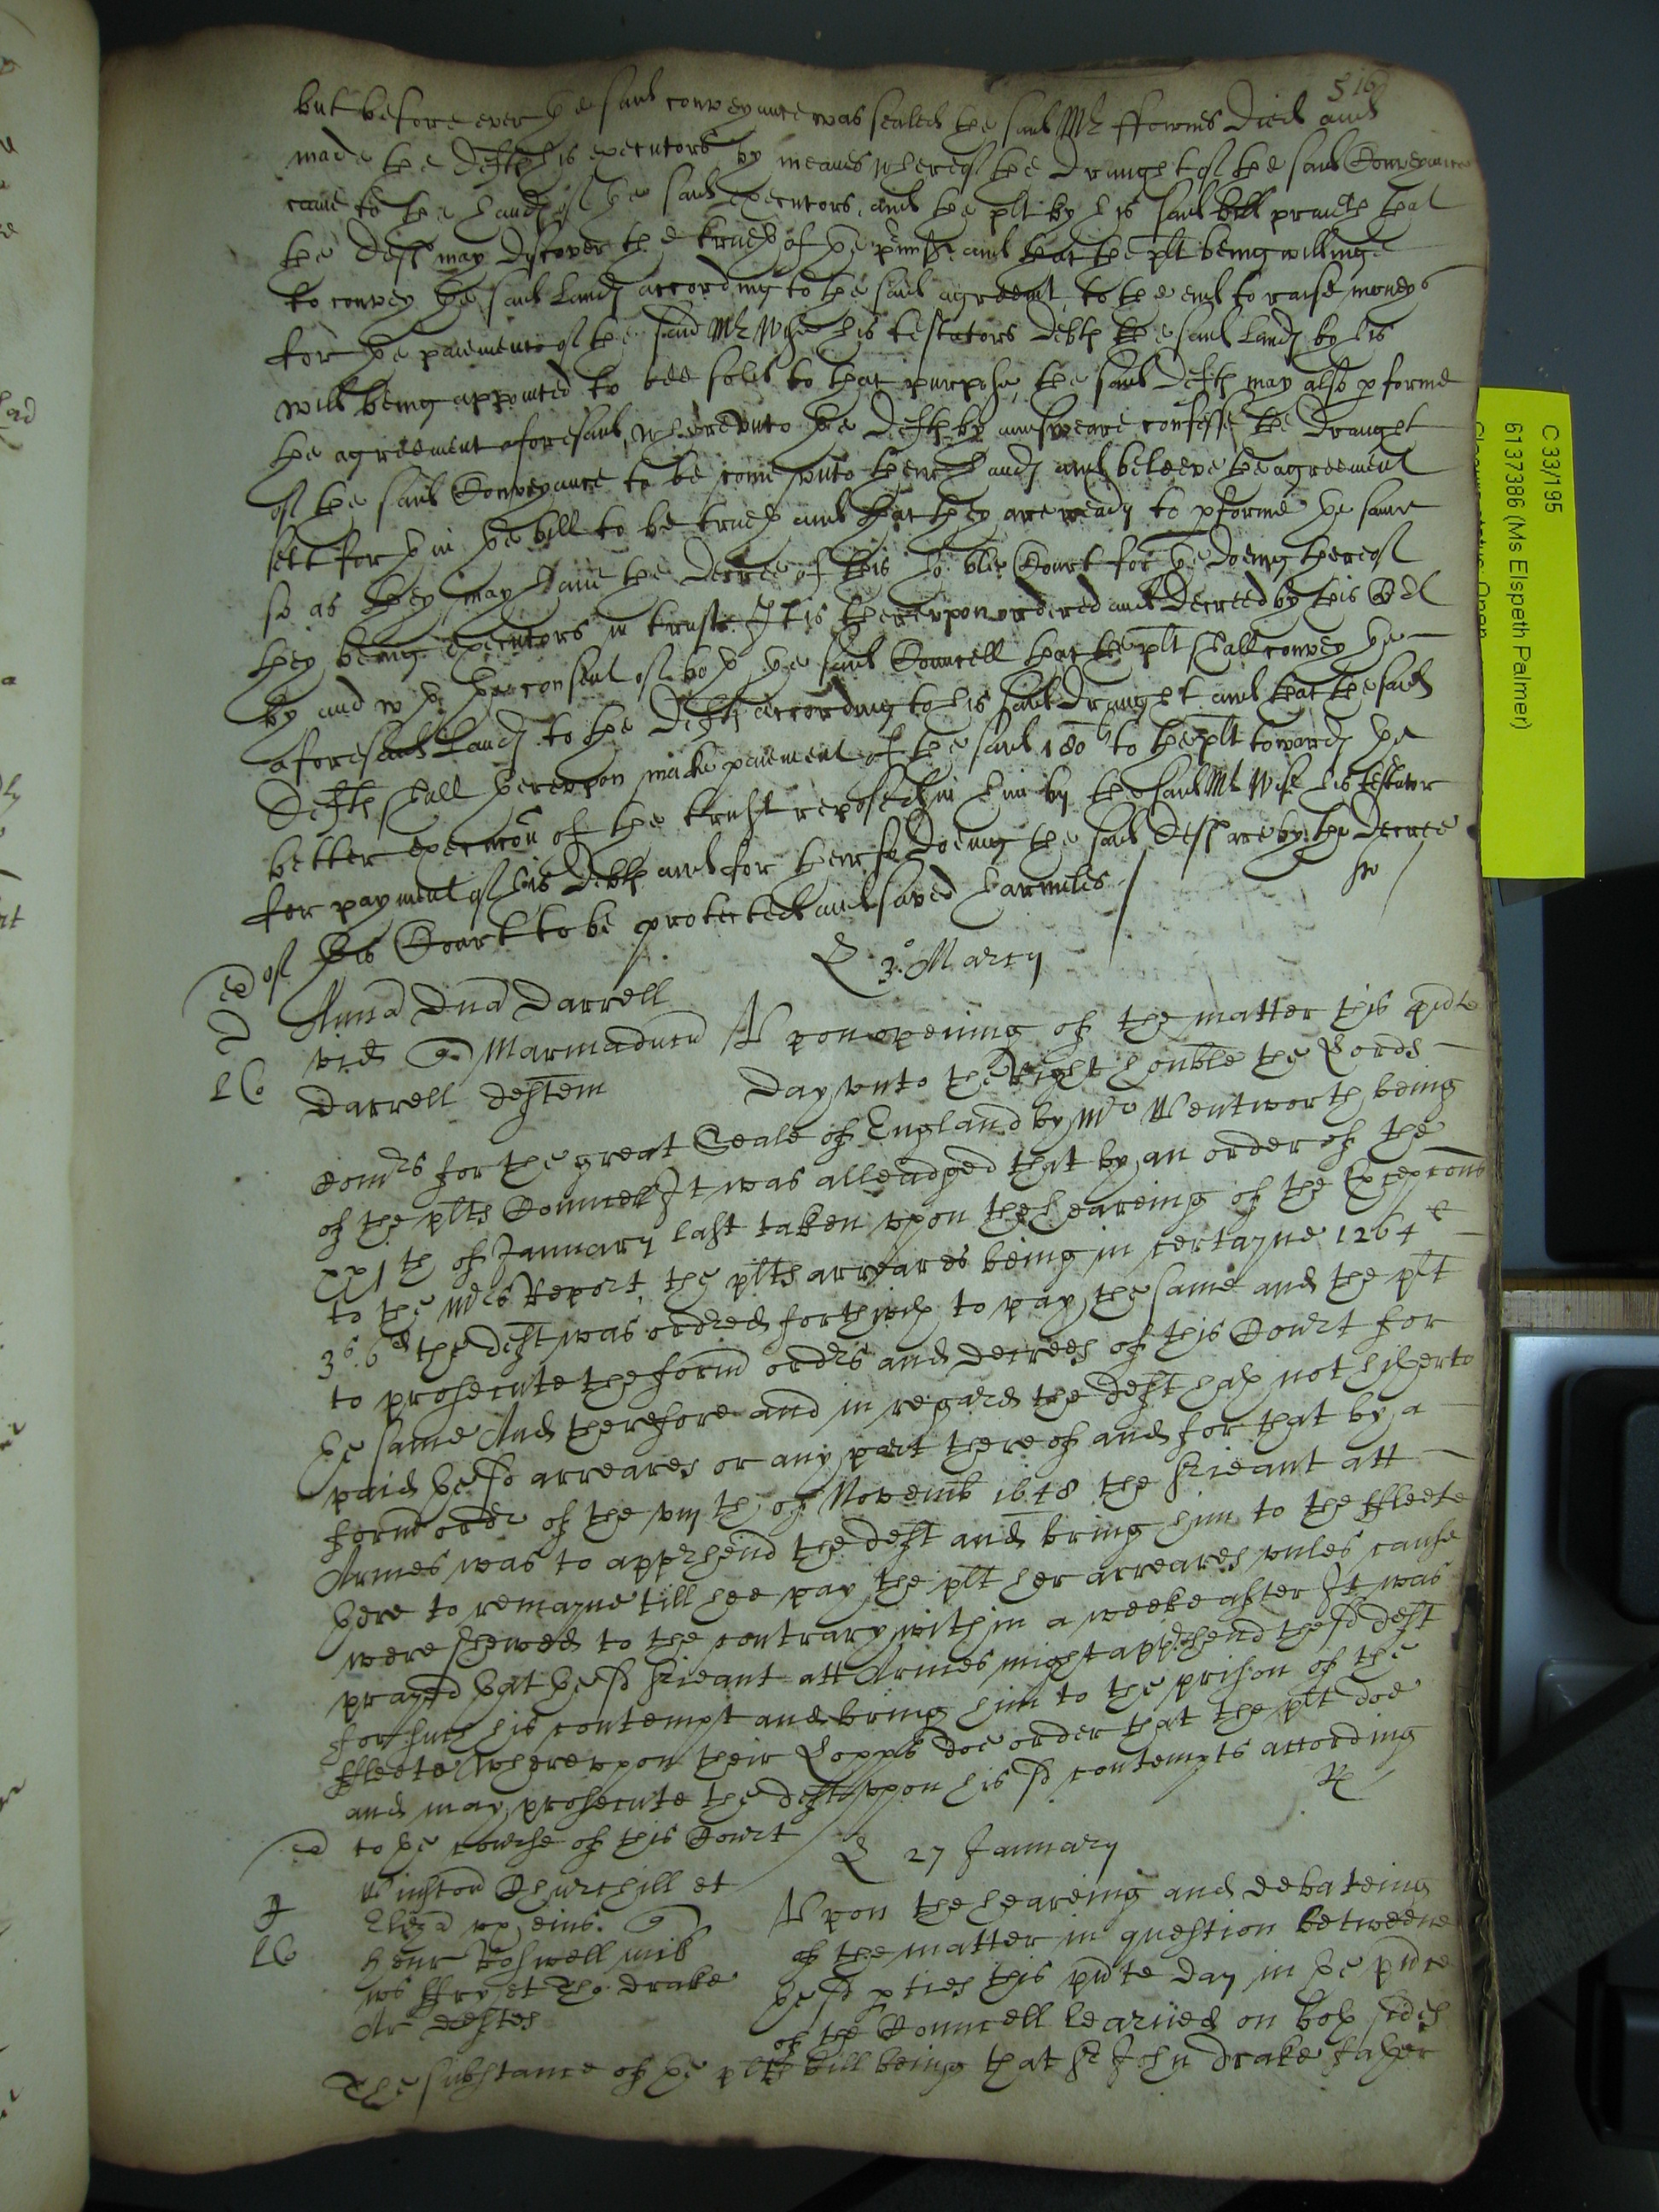 516
but before ever ye said conveyance was sealed the said Mr ffownes died and
made the defts his executors by meanes whereof the draught of the said Conveyance
came to the hands of ye said executors, and the plt by his said bill prayeth that
the defts may discover the trueth of ye pmisses and that the plt being willinge
to convey ye said Lands according to the said agreemt to the end to raise moneys
for ye paiement of the said Mr Wise his testators debts the said Lands by his
will being appointed to bee sold to that purpose, the said defts may also pforme
the agreement aforesaid, Whereunto ye defts by answeare confesse the draught
of the said Conveyance to be come unto their hands and beleeve the agreement
sett forth in ye bill to be trueth and that they are ready to pforme ye same
so as they may have the decree of this ho:ble Court for ye doeing thereof
they being executors in trust. It is thereupon ordered and decreed by this Court
by and wth the consent of both ye said Councell that the plt shall convey ye
aforesaid Lands to the defts according to his said draught and that the said
defts shall thereupon make paiement of the said 180li to the plt towards ye
better execucon of the trust reposed in him by the said Mr Wise his testator
for payment of his debts and for their so doeing the said defts are by the decree
of this Court to be protected and saved harmeles
L 3o Marcij
Anna Dna Darrell
vid q Marmaducu
Darrell deftem
Upon opening of the matter this pnte
day unto the Right honble the Lords
Comrs for the great Seale of England by Mr Wentworth being
of the plts Councell It was alleadged that by an order of the
xxjth of January last taken upon the heareing of the Excepcons
to the Mrs Report the plts arreares being in certayne 1264li
3s 6d the deft was ordred forthwth to pay the same and the plt
to prosecute the form ordrs and decrees of this Court for
ye same And therefore and in regard the deft hath not hitherto
paid ye sd arreares or any part thereof and for that by a
form ordr of the viijth of Novemb 1648 the Srieant att
Armes was to apprhend the deft and bring him to the ffleete
there to remayne till hee pay the plt her arreares unles cause
were shewed to the contrary within a weeke after It was
prayed that ye sd Srieant att Armes might apprhend the sd deft
for such his contempt and bring him to the prison of the
ffleete Whereupon their Lopps doe order that the plt doe
and may prosecute the deft upon his sd contempts according
to ye course of this Court
L 27 January
Winston Churchill et
Eliza ux eius. q
Henr Roswell mil
Tho. Drake
Ar deftes
Upon the heareing and debateing
of the matter in question betweene
ye sd pties this pnte day in ye pnce
of the Councell learned on both sides
The substance of ye plts bill being that Sr John Drake father